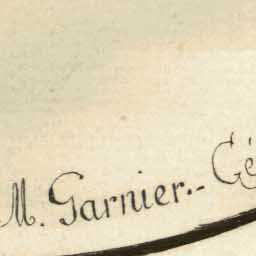 M. Garnier.- Cé